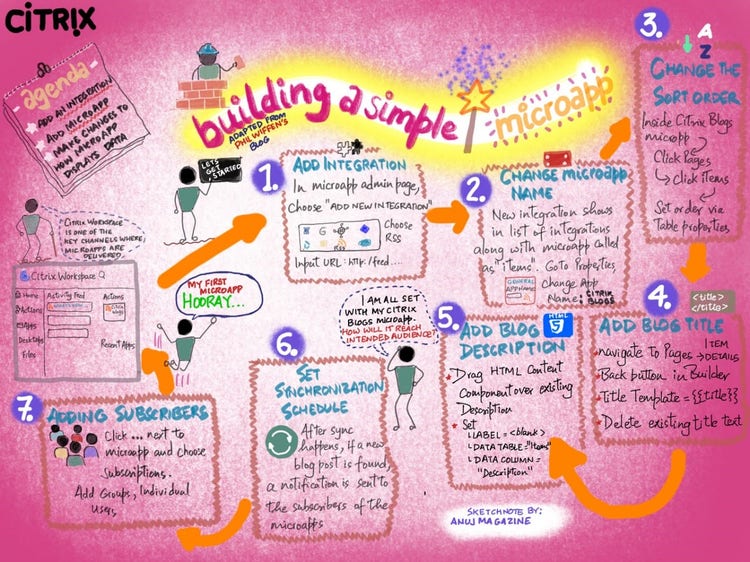 CITRIX
agenda
ADD AN INTEGRATION
ADD MICROAPP
MAKE CHANGES TO
HOW MICROAPP
DISPLAYS DATA
building a simple
microapp
ADAPTED FROM
PHIL WIFFEN'S
BLOG
LETS
GET
STARTED
1.
ADD INTEGRATION
In microapp admin page,
Choose "ADD NEW INTEGRATION"
Choose
RSS
Input URL: http:/feed....
2.
CHANGE microapp
NAME
New integration shows
in list of integrations
along with microapp called
as "items". Go to Properties
GENERAL
change App
Name: CITRIX
BLOGS
3.
A
Z
CHANGE THE
SORT ORDER
Inside Citrix Blogs
microapp
Click Pages
Click items
Set order via
Table properties
4.
<title>
</title>
ADD BLOG TITLE
navigate to Pages → ITEM
DETAILS
Back button in Builder
Title Template = {{title}}
Delete existing title text
5.
HTML
5
ADD BLOG
DESCRIPTION
Drag HTML Content
Component over existing
Description
Set
LABEL = <blank>
DATA TABLE = "Items"
DATA COLUMN =
"Description"
I AM ALL SET
WITH MY CITRIX
BLOGS MICROAPP.
HOW WILL IT REACH
INTENDED AUDIENCE?
6.
SET
SYNCHRONIZATION
SCHEDULE
After sync
happens, if a new
blog post is found,
a notification is sent to
the subscribers of the
microapps
7.
ADDING SUBSCRIBERS
Click ... next to
microapp and choose
Subscriptions.
Add Groups, Individual
Users,
MY FIRST
MICROAPP
HOORAY...
CITRIX WORKSPACE
IS ONE OF THE
KEY CHANNELS WHERE
MICROAPPS ARE
DELIVERED.
Citrix Workspace
Home
Activity Feed
Actions
Actions
Apps
Desktops
Files
Recent Apps
SKETCHNOTE BY:
ANUJ MAGAZINE